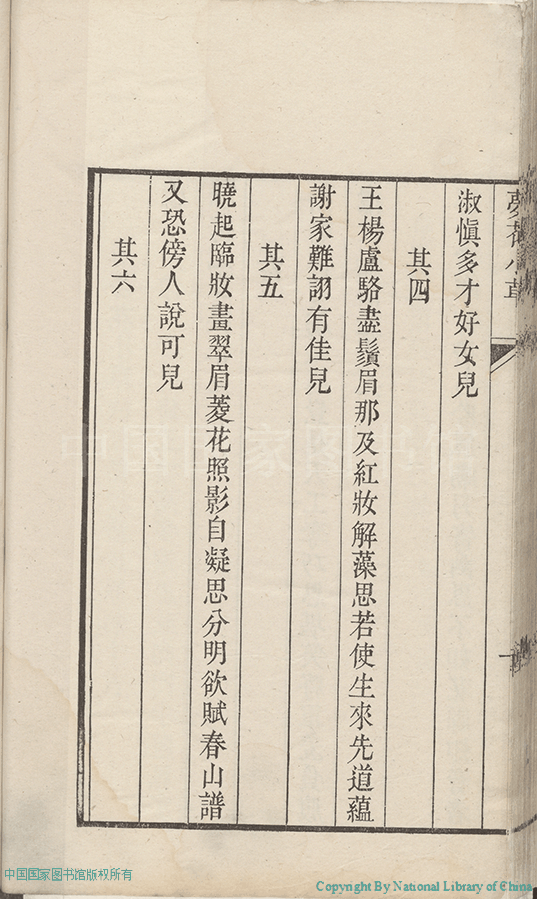 淑愼多才好女兒
其四
王楊盧駱盡鬚眉那及紅妝解藻思若使生來先道蘊
謝家難詡有佳兒
其五
曉起臨妝畫翠眉菱花照影自凝思分明欲賦春山譜
又恐傍人說可兒
其六
中国国家图书馆
中国国家图书馆版权所有
Copyright By National Library of China